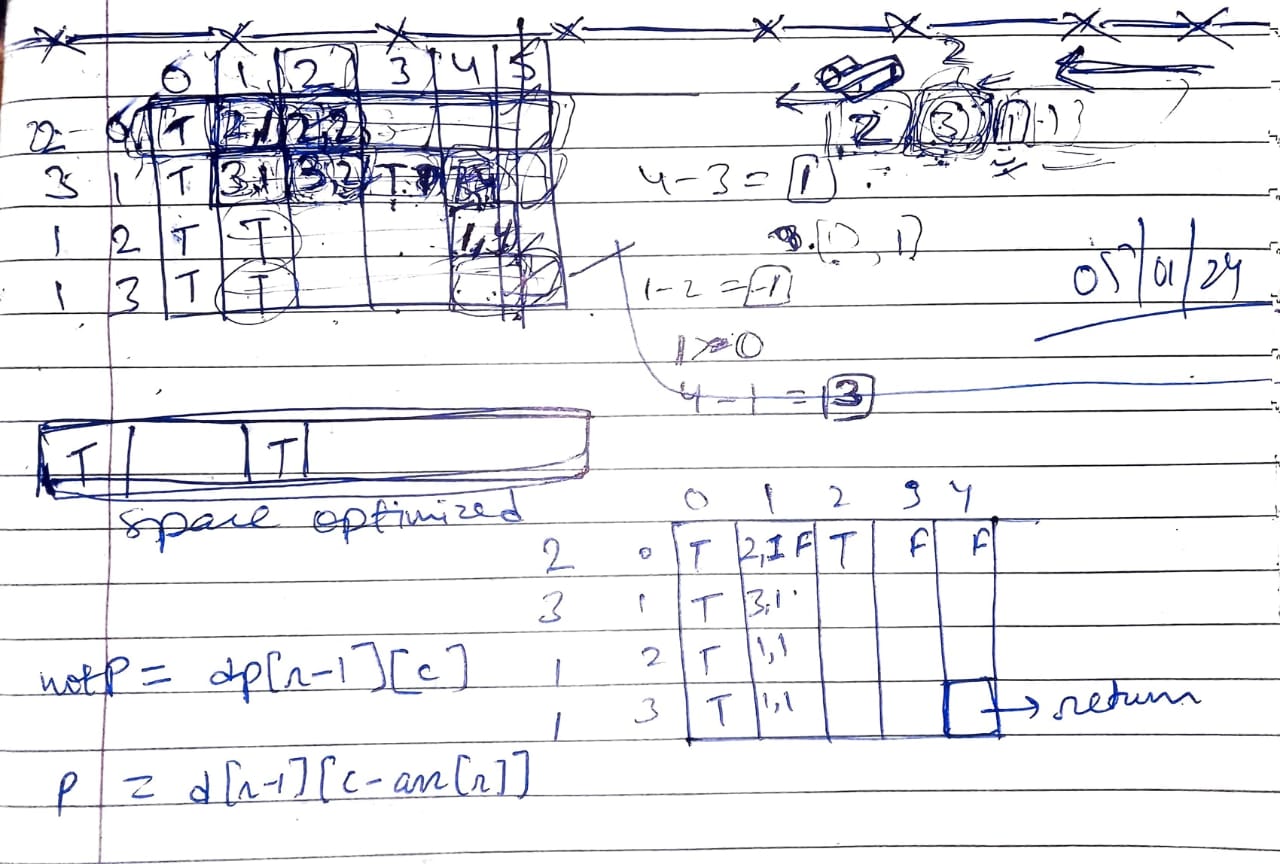 0 1 2 3 4 5
2 0 T 2,1 2,2
3 1 T 3,1 3,2 T
1 2 T T 1,4
1 3 T T
2
2 3 1
4-3 = 1
1-2 = -1
1 > 0
4-1 = 3
05/01/24
T T
space optimized
0 1 2 3 4
2 0 T 2,1 F T F F
3 1 T 3,1
1 2 T 1,1
1 3 T 1,1 → return
notP = dp[r-1][c]
P = d[r-1][c-arr[r]]